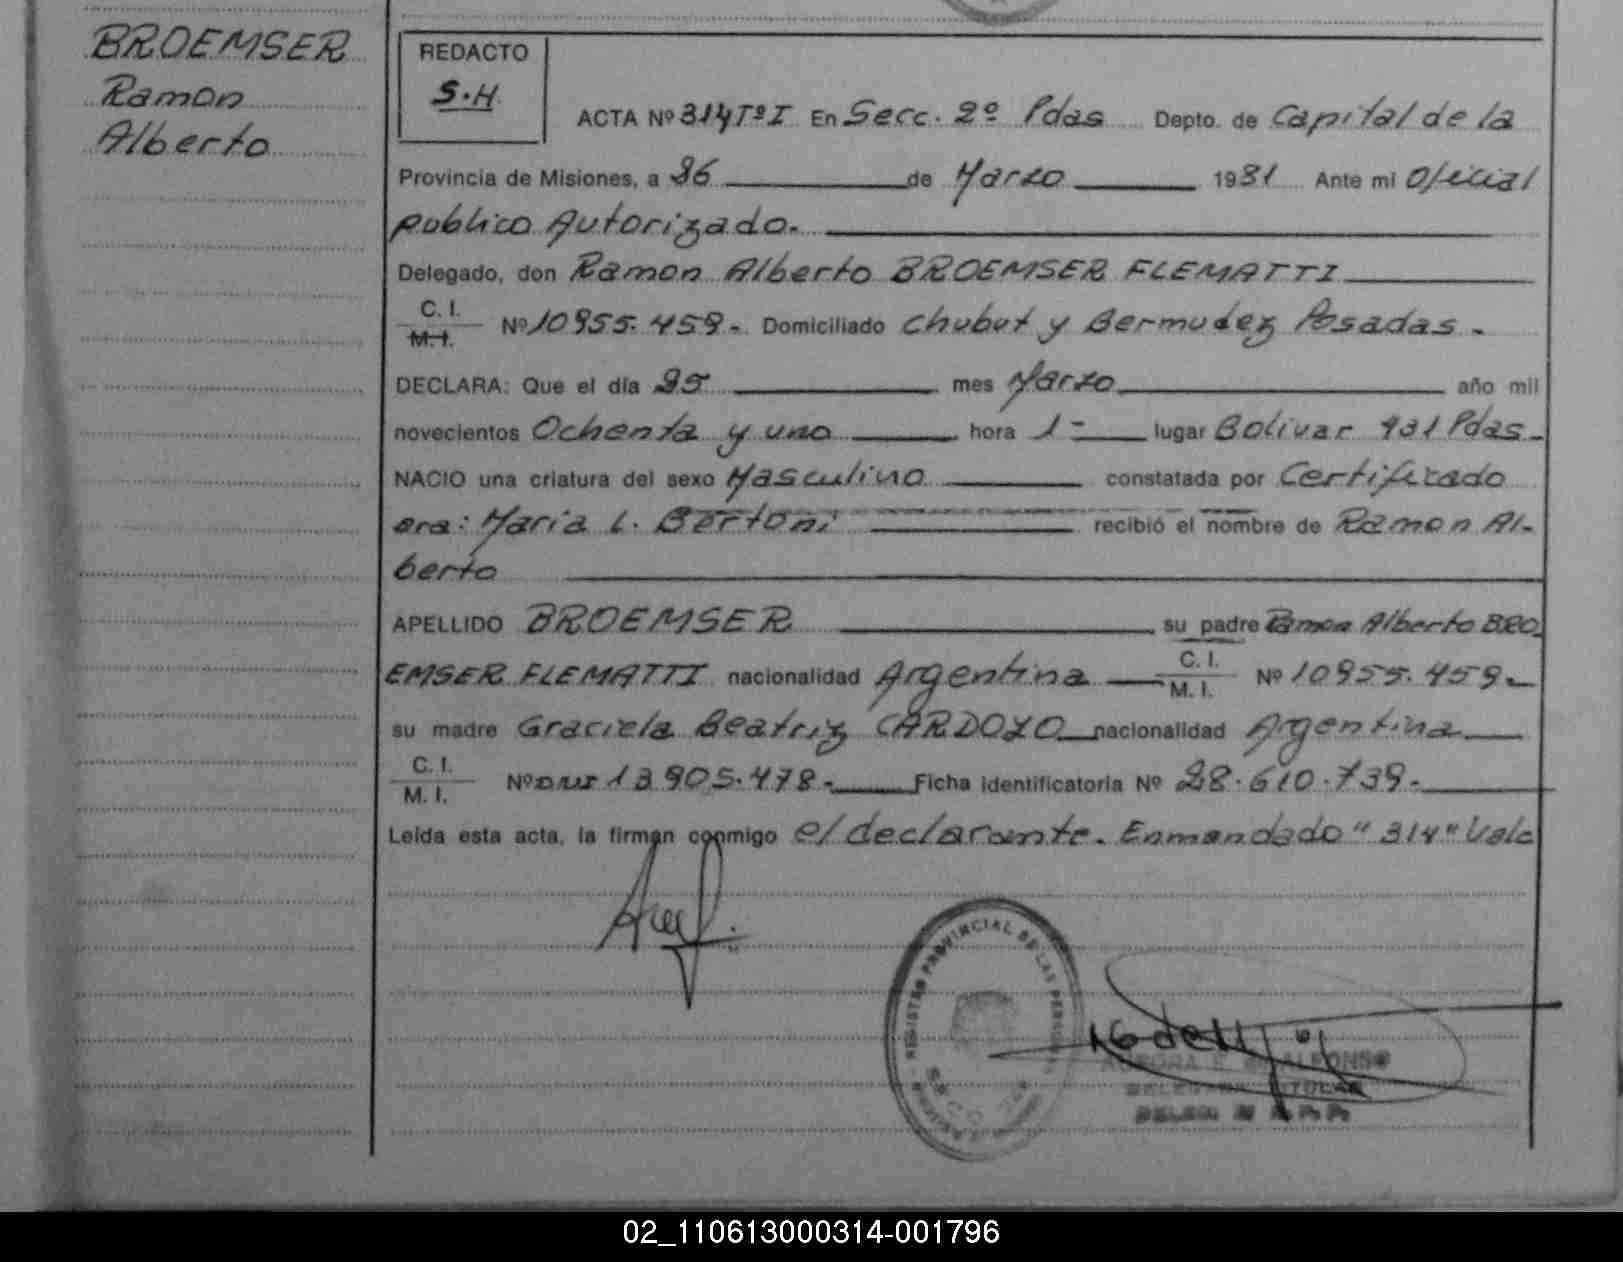 BROEMSER
Ramon
Alberto
REDACTO
S.H.
ACTA Nº 314 TºI En Secc. 2º Pdas Depto. de Capital de la
Provincia de Misiones, a 26 de Marzo 1981 Ante mi Oficial
publico Autorizado.
Delegado, don Ramon Alberto BROEMSER FLEMATTI
C. I.
M. I. Nº 10955.459.- Domiciliado Chubut y Bermudez Posadas.
DECLARA: Que el día 25 mes Marzo año mil
novecientos Ochenta y uno hora 1- lugar Bolivar 931 Pdas.
NACIO una criatura del sexo Masculino constatada por Certificado
dra: Maria L. Bertoni recibió el nombre de Ramon Al-
berto
APELLIDO BROEMSER su padre Ramon Alberto BRO
EMSER FLEMATTI nacionalidad Argentina C. I.
M. I. Nº 10955.459.-
su madre Graciela Beatriz CARDOZO nacionalidad Argentina
C. I.
M. I. Nº DNI 13.905.478.- Ficha identificatoria Nº 28.610.739.-
Leída esta acta, la firman conmigo el declarante. Enmendado "314" Vale
REGISTRO PROVINCIAL DE LAS PERSONAS
02_110613000314-001796